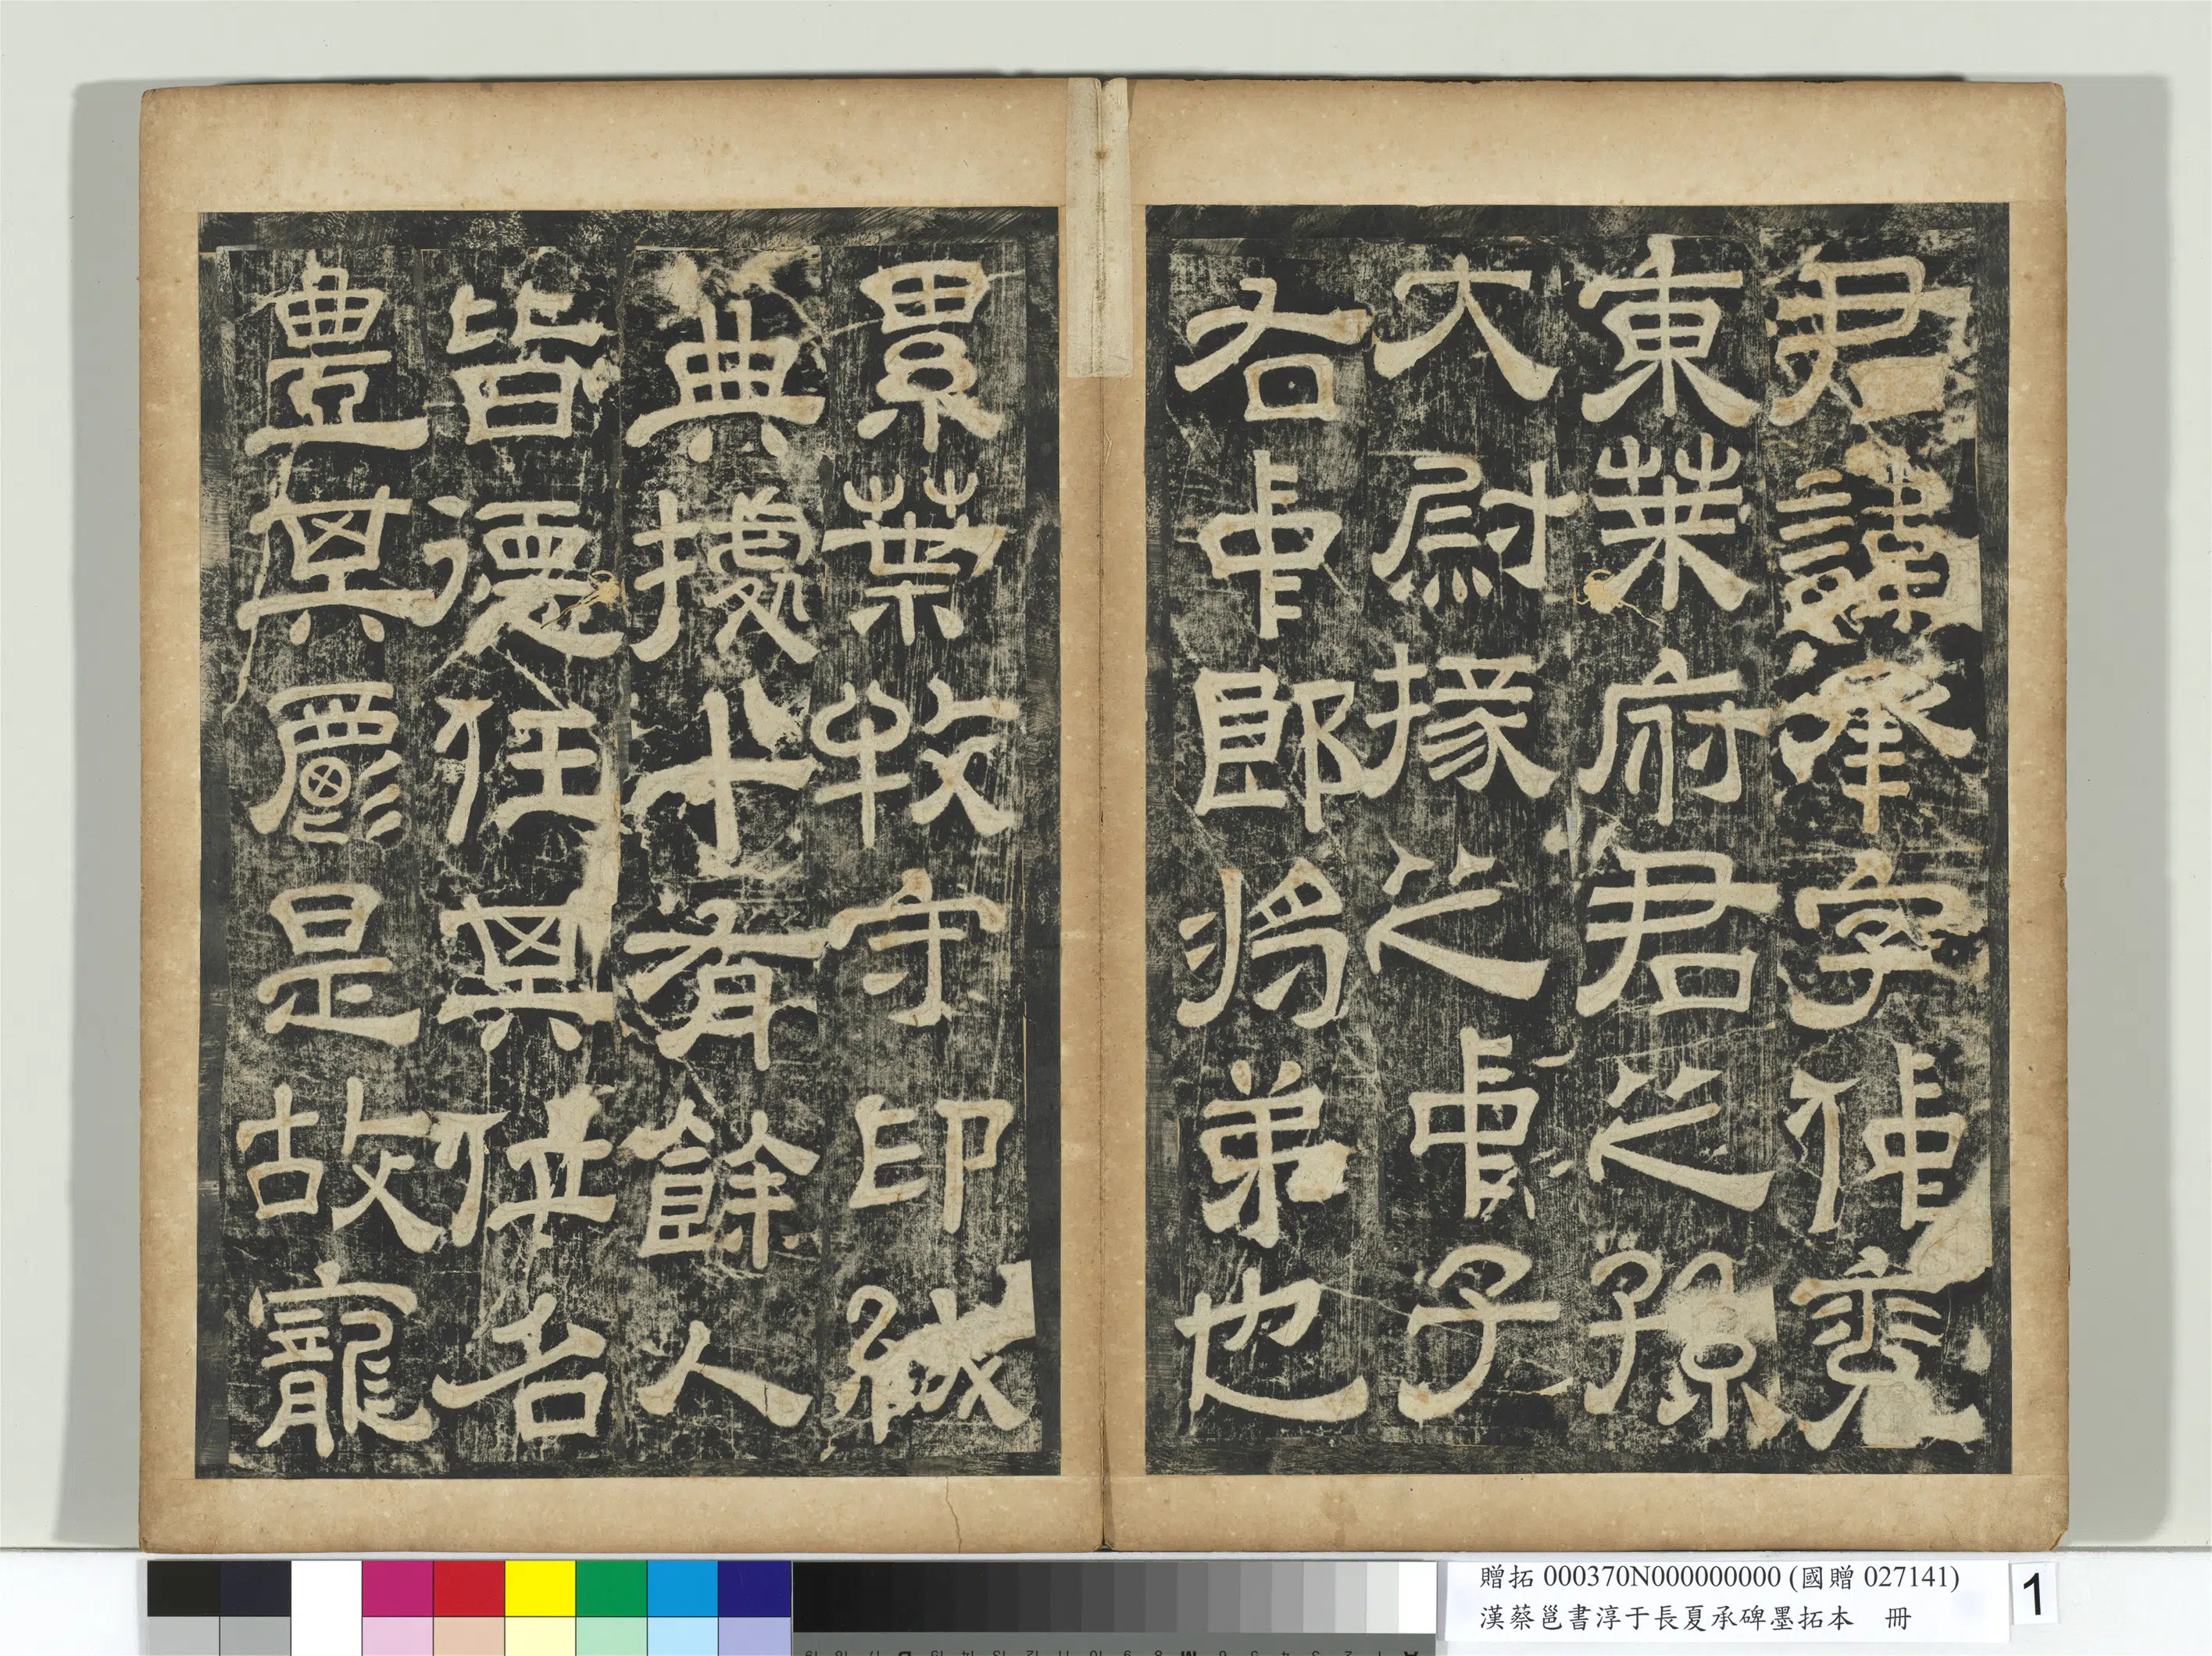 君諱承字仲兗
東萊府君之孫
大尉掾之中子
右中郎將弟也
累葉牧守印紱
典據十有餘人
皆德任其位名
豐其爵是故寵
贈拓 000370N000000000 (國贈 027141)
漢蔡邕書淳于長夏承碑墨拓本 冊
1